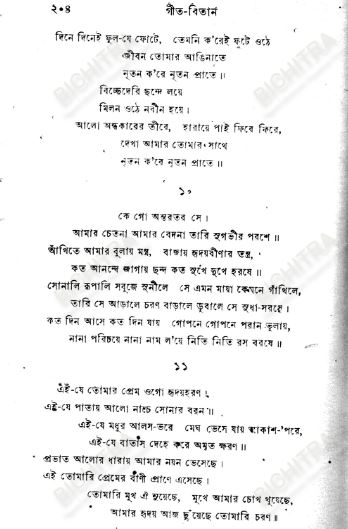 ২০৪
গীত-বিতান
দিনে দিনেই ফুল-যে ফোটে, তেমনি ক'রেই ফুটে ওঠে
জীবন তোমার আঙিনাতে
নূতন ক'রে নূতন প্রাতে॥
বিচ্ছেদেরি ছন্দে লয়ে
মিলন ওঠে নবীন হয়ে।
আলো অন্ধকারের তীরে, হারায়ে পাই ফিরে ফিরে,
দেখা আমার তোমার সাথে
নূতন ক'রে নূতন প্রাতে॥
১০
কে গো অন্তরতর সে।
আমার চেতনা আমার বেদনা তারি সুগভীর পরশে॥
আঁখিতে আমার বুলায় মন্ত্র, বাজায় হৃদয়বীণার তন্ত্র,
কত আনন্দে জাগায় ছন্দ কত সুখে দুখে হরষে॥
সোনালি রূপালি সবুজে সুনীলে সে এমন মায়া কেমনে গাঁথিলে,
তারি সে আড়ালে চরণ বাড়ালে ডুবালে সে সুধা-সরসে।
কত দিন আসে কত দিন যায় গোপনে গোপনে পরান ভুলায়,
নানা পরিচয়ে নানা নাম ল'য়ে নিতি নিতি রস বরষে॥
১১
এই-যে তোমার প্রেম ওগো হৃদয়হরণ।
এই-যে পাতায় আলো নাচে সোনার বরন॥
এই-যে মধুর আলস-ভরে মেঘ ভেসে যায় আকাশ-'পরে,
এই-যে বাতাস দেহে করে অমৃত ক্ষরণ॥
প্রভাত আলোর ধারায় আমার নয়ন ভেসেছে।
এই তোমারি প্রেমের বাণী প্রাণে এসেছে।
তোমারি মুখ ঐ নুয়েছে, মুখে আমার চোখ থুয়েছে,
আমার হৃদয় আজ ছুঁয়েছে তোমারি চরণ॥
BICHITRA